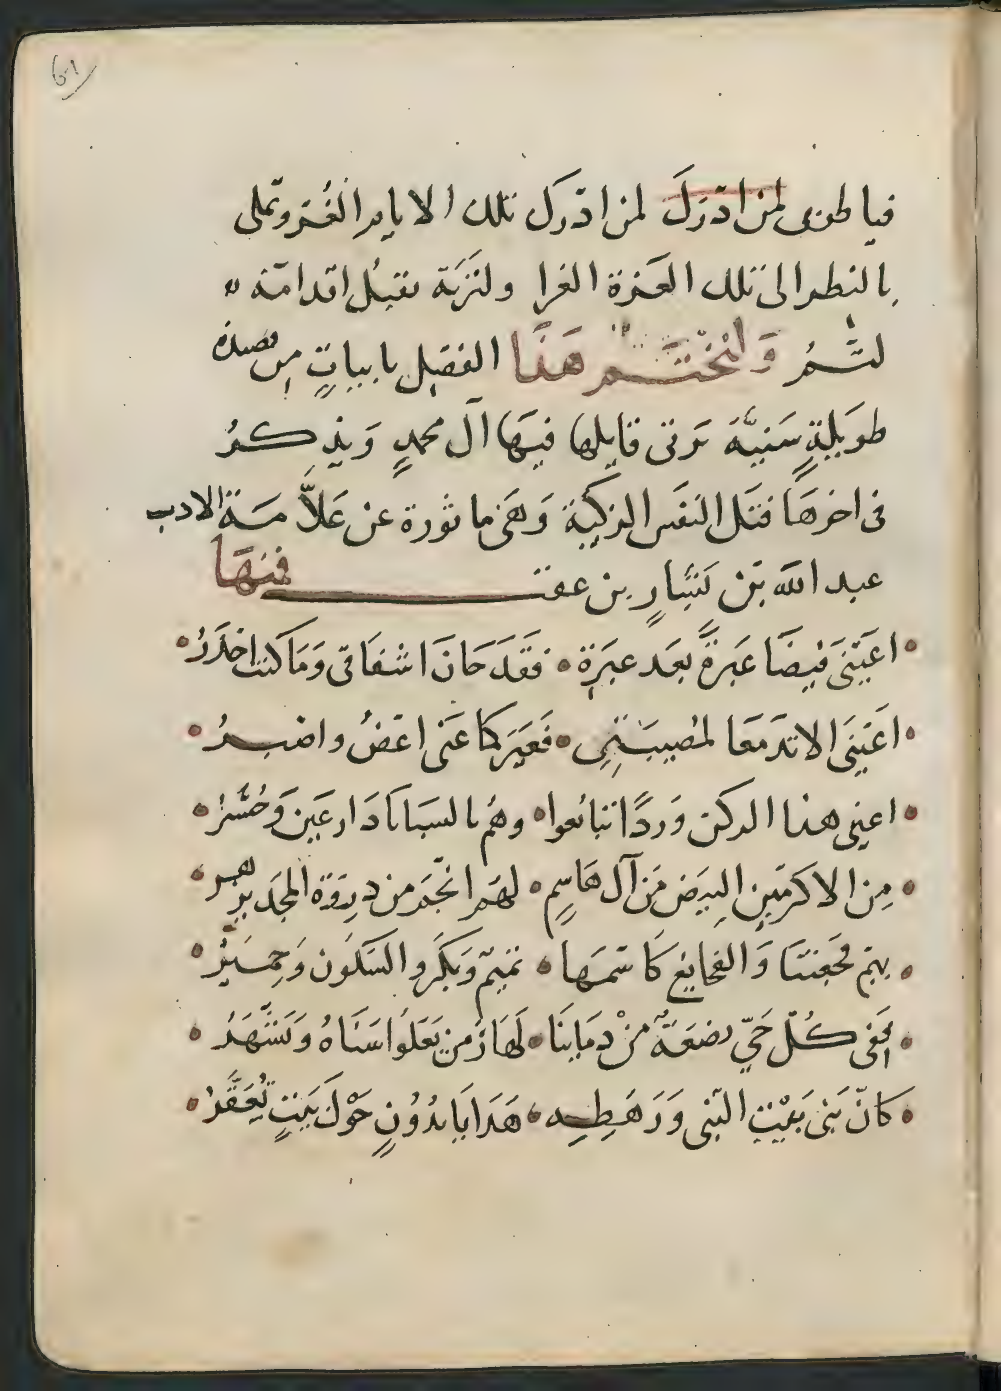 61
فيا طوبى لمن ادرك لمن ادرك تلك الايام الغر وتملى
بالنظر الى تلك الغرة الغرا ولثربة تقبل اقدامه
لثم ولنختم هذا الفصل بابيات من قصيدة
طويلة سنية يرثى قايلها فيها آل محمد ويذكر
فى اخرها قتل النفس الزكية وهى ماثورة عن علامة الادب
عبد الله بن بشار بن عقب فمنها
اعينى فيضا عبرة بعد عبرة • فقد حان اشفاقى وما كنت احذر
اعينى الا تدمعا لمصيبتى • فغيركما عنى اغض واصبر
اعينى هذا الركن وردا تتابعوا • وهم بالسبايا دارعين وحسر
من الاكرمين البيض من آل هاشم • لهم انجم من ذروة المجد تزهر
بهم فجعتنا والفجايع كاسمها • تميم وبكر والسكون وحمير
ففى كل حي بضعة من دماينا • لها زمن يعلوا سناه ويشهر
كان بنى بنت النبى ورهطه • هدايا بدون حول بيت تعقر